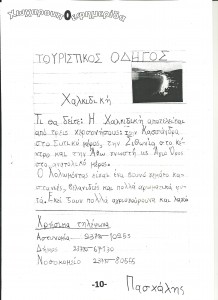 ΤΟΥΡΙΣΤΙΚΟΣ ΟΔΗΓΟΣ
Χαλκιδική
Τι να δείτε: Η Χαλκιδική αποτελείται
από τρεις χερσονήσους την Κασσάνδρα
στο δυτικό μέρος, την Σιθωνία στο κέ-
ντρο και την Άθω γνωστή ως Άγιο Όρος
στο ανατολικό μέρος.
Ο Χολομώντας είναι ένα βουνό γεμάτο κασ-
τανιές, βελανιδιές και πολλά αρωματικά φυ-
τά. Εκεί ζουν πολλά αγριογούρουνα και λαγοί
Χρήσιμα τηλέφωνα
Αστυνομία
Δήμος
Νοσοκομείο
-10-
Πασχάλης